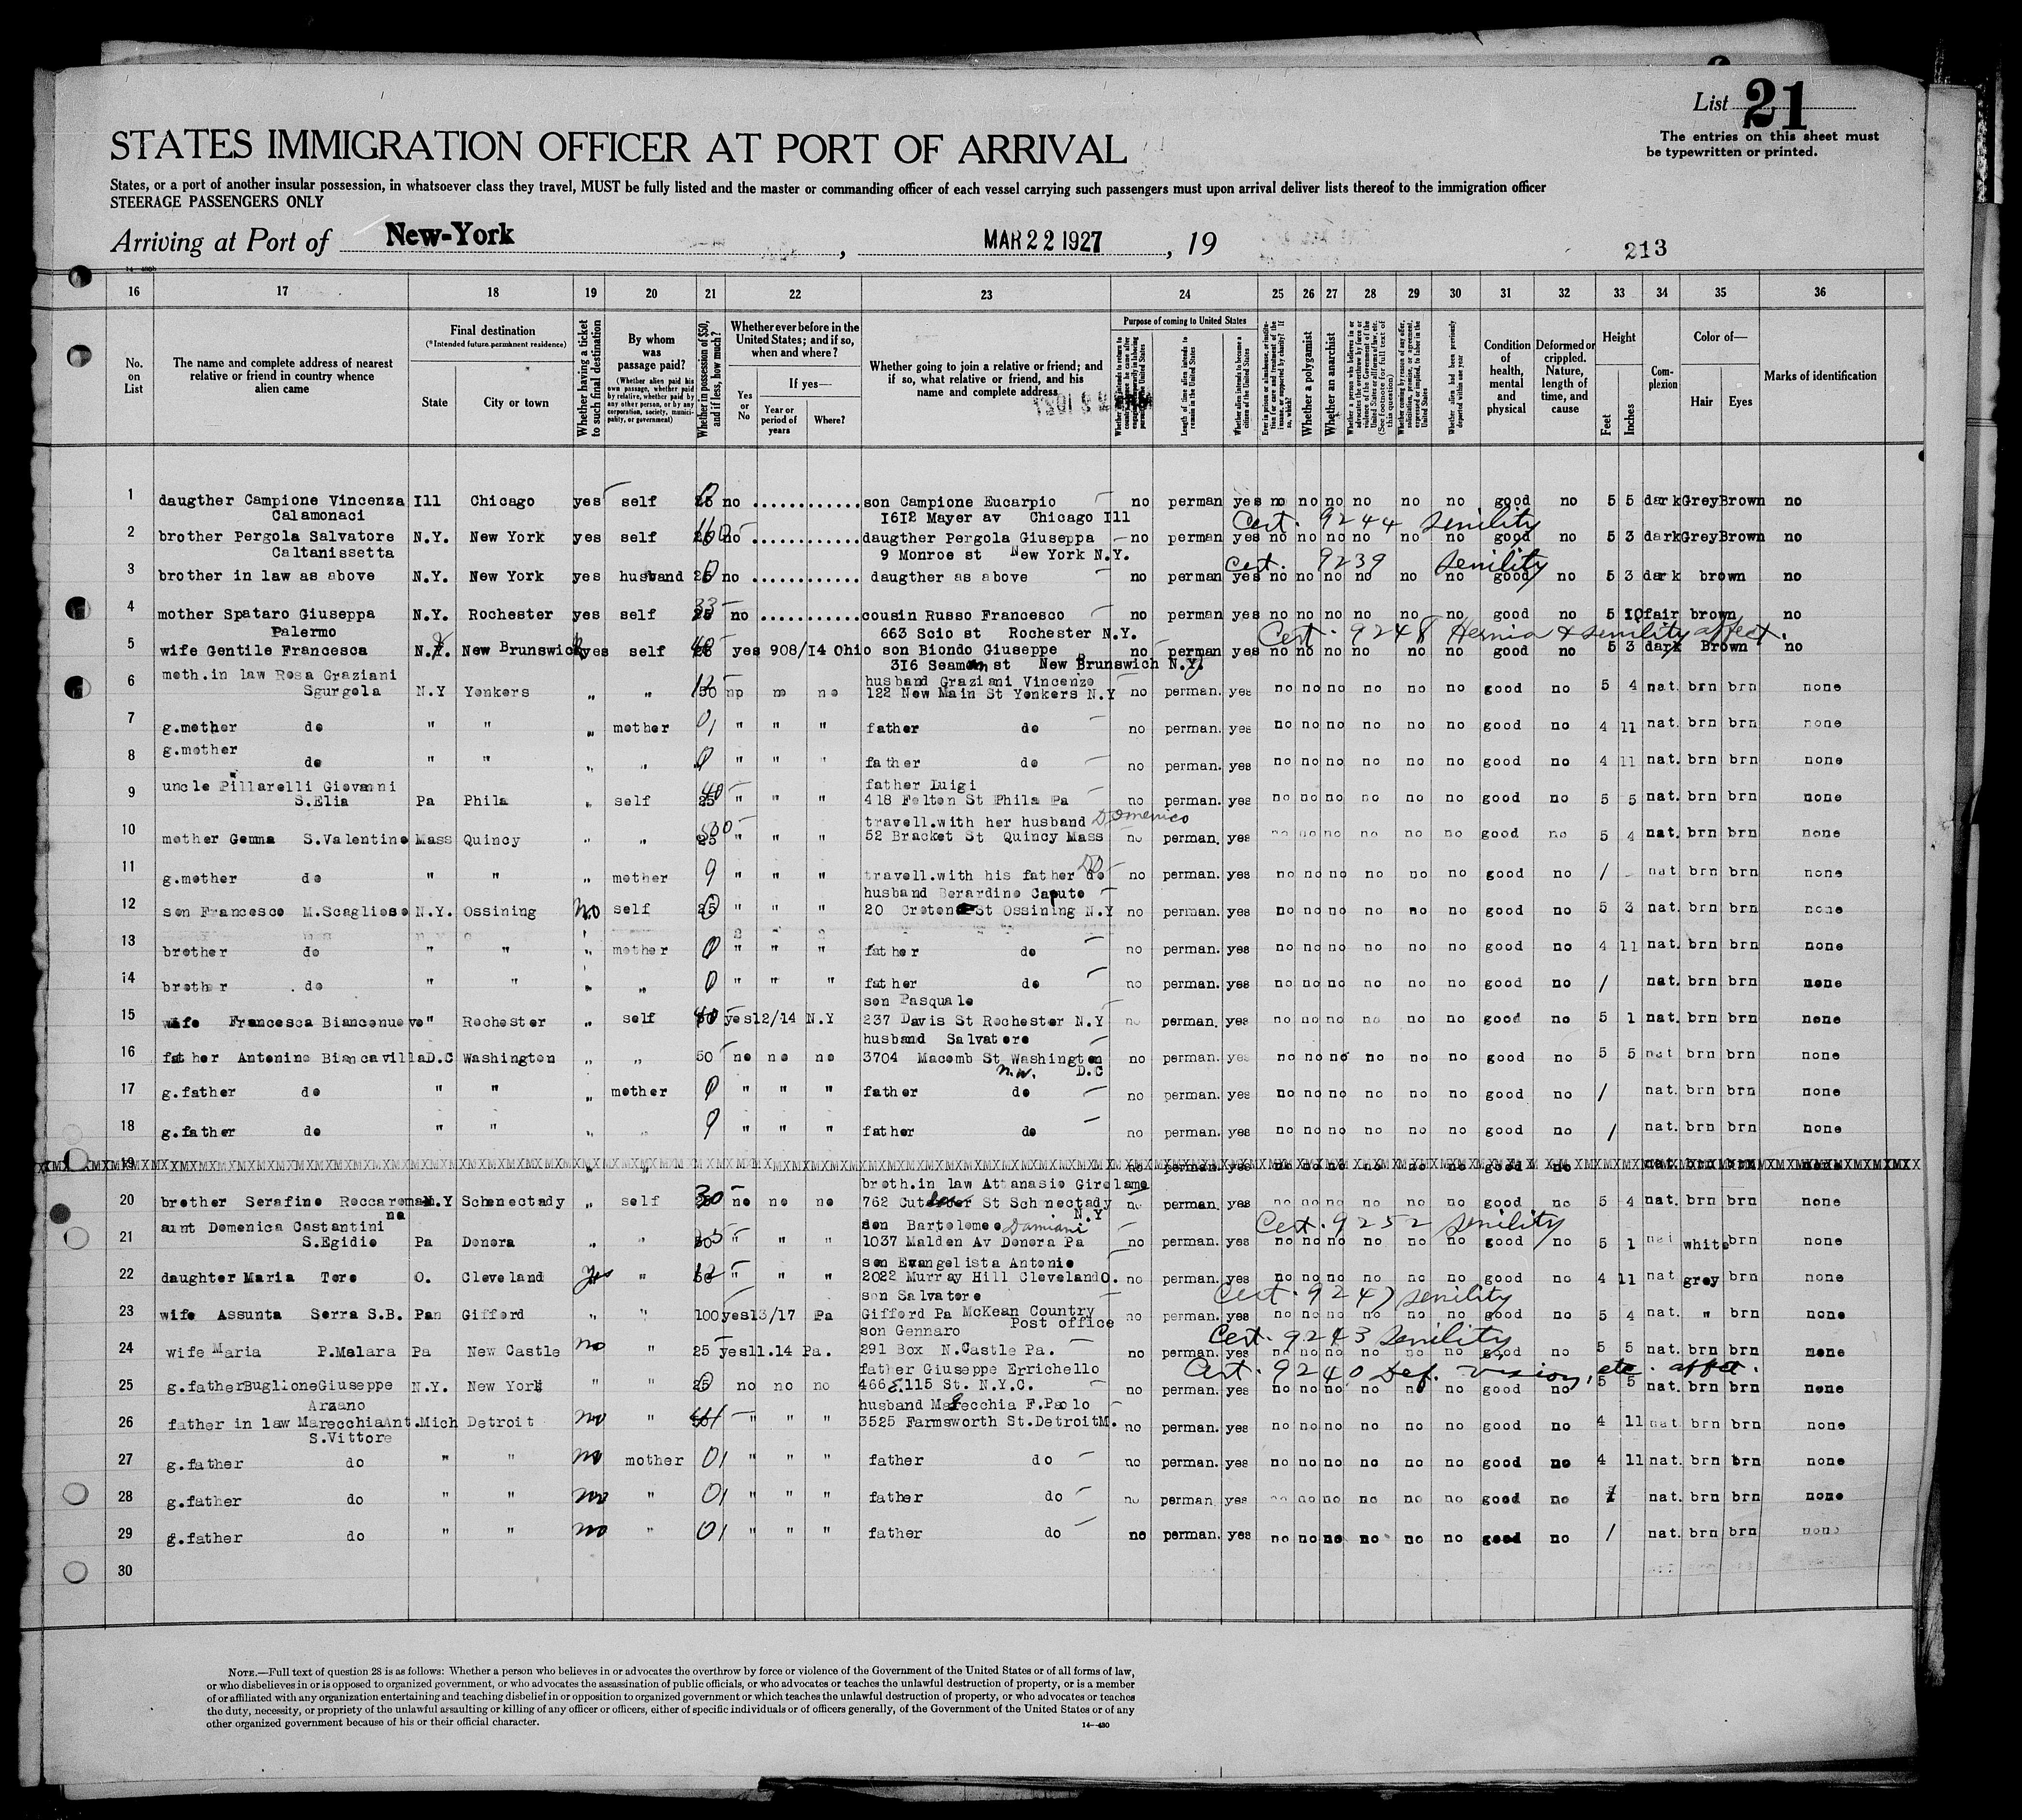 List 21
The entries on this sheet must
be typewritten or printed.
STATES IMMIGRATION OFFICER AT PORT OF ARRIVAL
States, or a port of another insular possession, in whatsoever class they travel, MUST be fully listed and the master or commanding officer of each vessel carrying such passengers must upon arrival deliver lists thereof to the immigration officer
STEERAGE PASSENGERS ONLY
Arriving at Port of New-York, MAR 22 1927, 19
213
16 17 18 19 20 21 22 23 24 25 26 27 28 29 30 31 32 33 34 35 36
No. on List
The name and complete address of nearest relative or friend in country whence alien came
Final destination
(*Intended future permanent residence)
State City or town
Whether having a ticket to such final destination
By whom was passage paid?
(Whether alien paid his own passage, whether paid by relative, whether paid by any other person, or by any corporation, society, municipality, or government)
Whether in possession of $50, and if less, how much?
Whether ever before in the United States; and if so, when and where?
Yes or No
If yes—
Year or period of years
Where?
Whether going to join a relative or friend; and if so, what relative or friend, and his name and complete address
Purpose of coming to United States
Length of time alien intends to remain in the United States
Whether alien intends to become a citizen of the United States
Whether a polygamist
Whether an anarchist
Whether alien had been previously deported within one year
Condition of health, mental and physical
Deformed or crippled. Nature, length of time, and cause
Height
Feet Inches
Complexion
Color of—
Hair Eyes
Marks of identification
1 daugther Campione Vincenza Ill Chicago yes self no ............ son Campione Eucarpio no perman yes no no no no no no good no 5 5 dark Grey Brown no
Calamonaci 1612 Mayer av Chicago Ill Cert. 9244 senility
2 brother Pergola Salvatore N.Y. New York yes self no ............ daugther Pergola Giuseppa no perman yes no no no no no no good no 5 3 dark Grey Brown no
Caltanissetta 9 Monroe st New York N.Y. Cert. 9239 senility
3 brother in law as above N.Y. New York yes husband no ............ daugther as above no perman yes no no no no no no good no 5 3 dark brown no
4 mother Spataro Giuseppa N.Y. Rochester yes self no ............ cousin Russo Francesco no perman yes no no no no no no good no 5 10 fair brown no
Palermo 663 Scio st Rochester N.Y. Cert. 9248 Hernia & senility affect.
5 wife Gentile Francesca New Brunswick yes self yes 908/14 Ohio son Biondo Giuseppe no perman yes no no no no no no good no 5 3 dark Brown no
316 Seaman st New Brunswich N.Y.
6 moth.in law Rosa Graziani husband Graziani Vincenzo
Sgurgola N.Y Yonkers " " no no 122 New Main St Yonkers N.Y no perman. yes no no no no no no good no 5 4 nat. brn brn none
7 g.mother do " " " mother " " " father do no perman. yes no no no no no no good no 4 11 nat. brn brn none
8 g.mother
do " " " " 0 " " " father do no perman. yes no no no no no no good no 4 11 nat. brn brn none
9 uncle Pillarelli Giovanni father Luigi
S.Elia Pa Phila " self " " " 418 Felton St Phila Pa no perman. yes no no no no no no good no 5 5 nat. brn brn none
10 travell.with her husband Domenico
mother Gemma S.Valentino Mass Quincy " " " " " 52 Bracket St Quincy Mass no perman. yes no no no no no no good no 5 4 nat. brn brn none
11 g.mother do " " " mother " " " travell.with his father do no perman. yes no no no no no no good no / nat brn brn none
12 husband Berardino Caputo
son Francesco M.Scaglioso N.Y. Ossining No self " " " 20 St Ossining N.Y no perman. yes no no no no no no good no 5 3 nat. brn brn none
13 brother do " " " mother 0 " " " father do no perman. yes no no no no no no good no 4 11 nat. brn brn none
14 brother do " " " " 0 " " " father do no perman. yes no no no no no no good no / nat. brn brn none
15 son Pasquale
wife Francesca Biancenuevo " Rochester " self yes 12/14 N.Y 237 Davis St Rochester N.Y no perman. yes no no no no no no good no 5 1 nat. brn brn none
16 husband Salvatore
father Antonino Biancavilla D.C Washington " " 50 no no no 3704 Macomb St Washington no perman. yes no no no no no no good no 5 5 nat brn brn none
N.W. D.C
17 g.father do " " " mother 0 " " " father do no perman. yes no no no no no no good no / nat. brn brn none
18 g.father do " " " " " " " father do no perman. yes no no no no no no good no / nat. brn brn none
19
20 broth.in law Attanasio Girolamo
brother Serafino Roccaromana N.Y Schenectady " self 30 no no no 762 St Schnectady N.Y no perman. yes no no no no no no good no 5 4 nat. brn brn none
21 aunt Domenica Castantini son Bartolomeo Damiani Cert. 9252 senility
S.Egidio Pa Donora " " " " " 1037 Malden Av Donora Pa no perman. yes no no no no no no good no 5 1 white brn none
22 son Evangelista Antonio
daughter Maria Tore O. Cleveland yes " " " " 2022 Murray Hill Cleveland O. no perman. yes no no no no no no good no 4 11 nat grey brn none
23 son Salvatore Cert. 9247 senility
wife Assunta Serra S.B. Pan Gifford " " 100 yes 13/17 Pa Gifford Pa McKean Country no perman. yes no no no no no no good no 5 4 nat. " brn none
Post office
24 son Gennaro Cert. 9243 Senility
wife Maria P.Melara Pa New Castle no " 25 yes 11.14 Pa. 291 Box N.Castle Pa. no perman. yes no no no no no no good no 5 5 nat. brn brn none
25 father Giuseppe Errichello Cert. 9240 Def. vision, etc. affct.
g.father Buglione Giuseppe N.Y. New York " " no no no 466 E.115 St. N.Y.C. no perman. yes no no no no no no good no 5 5 nat. brn brn none
Arzano
26 husband Marecchia F.Paolo
father in law Marecchia Ant. Mich Detroit no " " " " 3525 Farmsworth St.Detroit M. no perman. yes no no no no no no good no 4 11 nat. brn brn none
S.Vittore
27 g.father do " " no mother " " " father do no perman. yes no no no no no no good no 4 11 nat. brn brn none
28 g.father do " " no " " " " father do no perman. yes no no no no no no good no nat. brn brn none
29 g.father do " " no " " " " father do no perman. yes no no no no no no good no / nat. brn brn none
30
NOTE.—Full text of question 28 is as follows: Whether a person who believes in or advocates the overthrow by force or violence of the Government of the United States or of all forms of law,
or who disbelieves in or is opposed to organized government, or who advocates the assassination of public officials, or who advocates or teaches the unlawful destruction of property, or is a member
of or affiliated with any organization entertaining and teaching disbelief in or opposition to organized government or which teaches the unlawful destruction of property, or who advocates or teaches
the duty, necessity, or propriety of the unlawful assaulting or killing of any officer or officers, either of specific individuals or of officers generally, of the Government of the United States or of any
other organized government because of his or their official character.
14—430